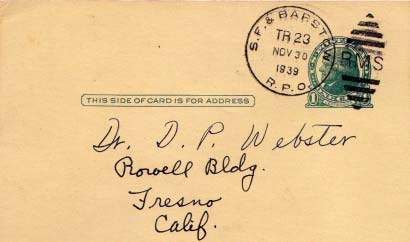 S.F. & BARST
TR 23
NOV 30
1939
R.P.O.
RMS
THIS SIDE OF CARD IS FOR ADDRESS
Dr. D. P. Webster
Rowell Bldg.
Fresno
Calif.